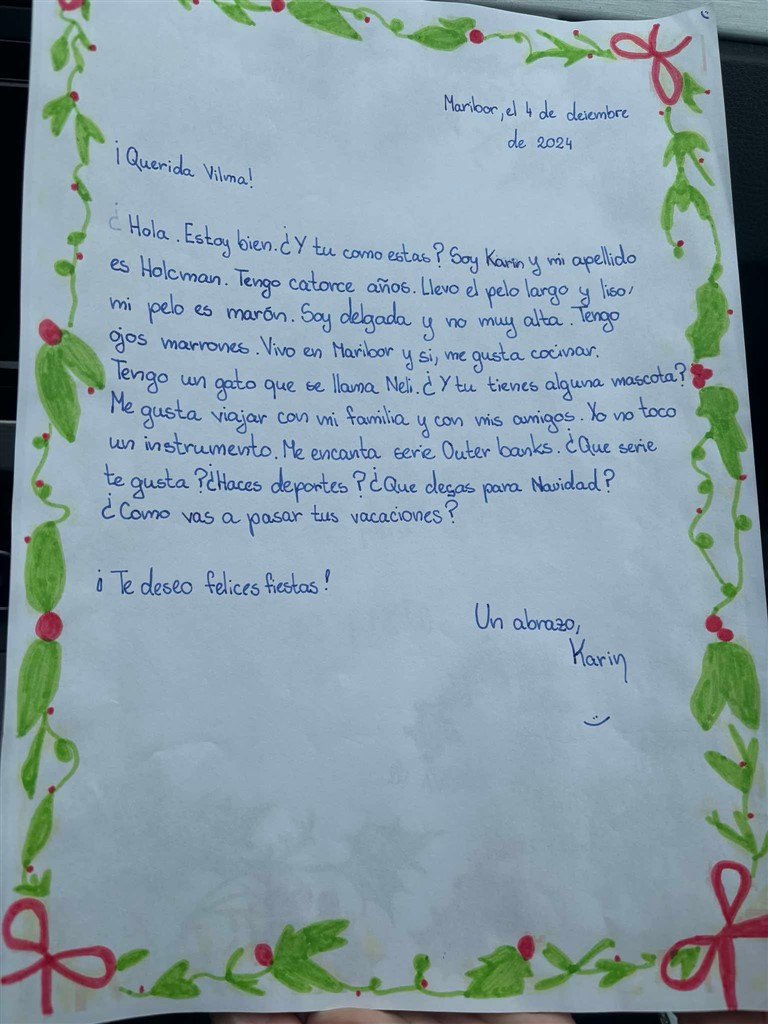 Maribor, el 4 de deiembre
de 2024
¡Querida Vilma!
¿Hola. Estoy bien. ¿Y tu como estas? Soy Karin y mi apellido
es Holcman. Tengo catorce años. Llevo el pelo largo y liso,
mi pelo es marón. Soy delgada y no muy alta. Tengo
ojos marrones. Vivo en Maribor y si, me gusta cocinar.
Tengo un gato que se llama Neli. ¿Y tu tienes alguna mascota?
Me gusta viajar con mi familia y con mis amigos. Yo no toco
un instrumento. Me encanta serie Outer banks. ¿Que serie
te gusta? ¿Haces deportes? ¿Que desas para Navidad?
¿Como vas a pasar tus vacaciones?
¡Te deseo felices fiestas!
Un abrazo,
Karin